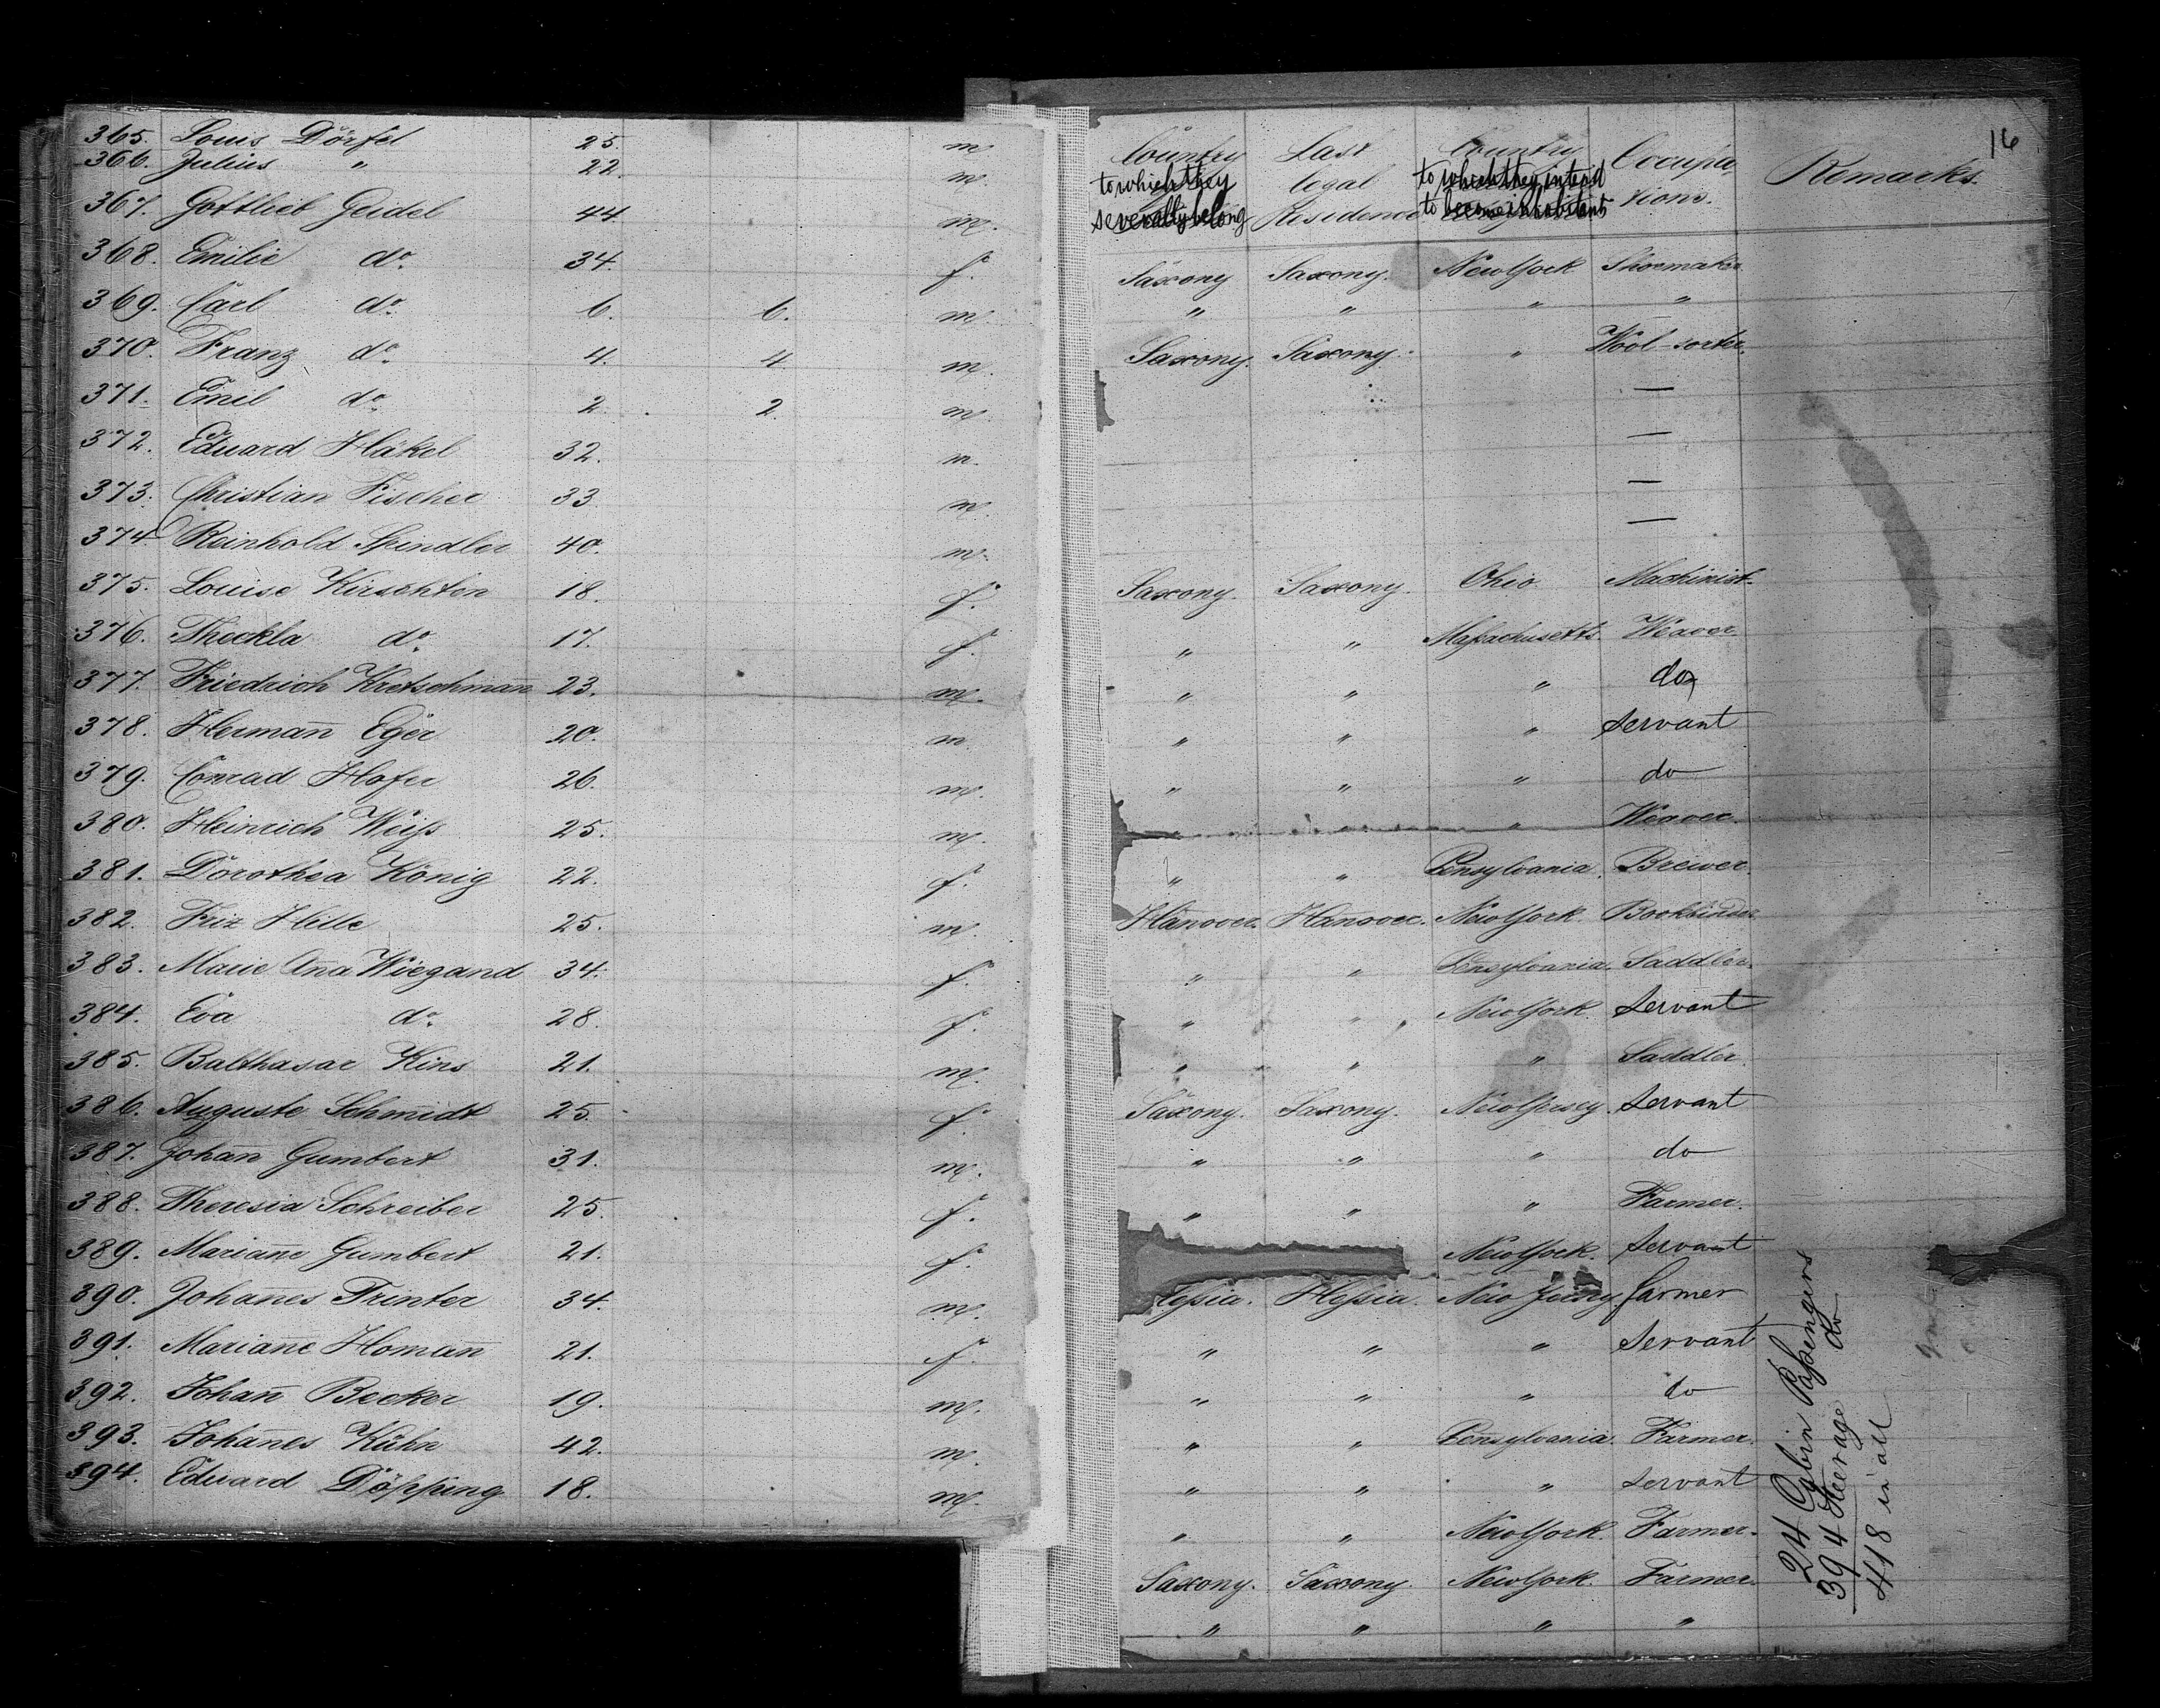 365. Louis Dörfel 25. m
366. Julius " 22. m.
367. Gottlieb Geidel 44. m.
368. Emilie do. 34. f.
369. Carl do. 6. 6. m.
370. Franz do. 4. 4. m.
371. Emil do. 2. 2. m.
372. Eduard Häkel 32. m.
373. Christian Fischer 33. m.
374. Reinhold Spindler 40. m.
375. Louise Kirschten 18. f.
376. Theckla do. 17. f.
377. Friedrich Kretschmann̄ 23. m.
378. Herman̄ Eger 20. m.
379. Conrad Hofer 26. m.
380. Heinrich Weiſs 25. m.
381. Dorothea König 22. f.
382. Friz Hille 25. m.
383. Marie An̄a Wiegand 34. f.
384. Eva do. 28. f.
385. Balthasar Kins 21. m.
386. Auguste Schmidt 25. f.
387. Johan̄ Gumbert 31. m.
388. Theresia Schreiber 25. f.
389. Marian̄e Gumbert 21. f.
390. Johan̄es Trinter 34. m.
391. Marian̄e Homan̄ 21. f.
392. Johan̄ Becker 19. m.
393. Johan̄es Kühn 42. m.
394. Eduard Döpping 18. m.
16
Country Last Country Occupa
to which they legal to which they intend tions.
severally belong Residence to become inhabitants
Remarks.
Saxony Saxony. New York Shoemaker
" " " "
Saxony. Saxony. " Wool-sorter.
—
—
—
—
Saxony. Saxony. Ohio. Machinist.
" " Maſsachusetts. Weaver.
" " " do
" " " servant
" " " do
" " " Weaver.
" " Pensylvania. Brewer.
Han̄over. Han̄over. New York Bookbinder.
" " Pensylvania. Saddler.
" " New York. Servant
" " " Saddler.
Saxony. Saxony. New Jersey. Servant
" " " do
" " " Farmer.
New York. Servant
Heſsia. Heſsia. New Jersey farmer
" " " Servant
" " " do
" " Pensylvania. Farmer.
" " " servant
" " New York. Farmer.
Saxony. Saxony. New York. Farmer.
" " " "
24 Cabin Paſsengers
394 Steerage do
418 in all